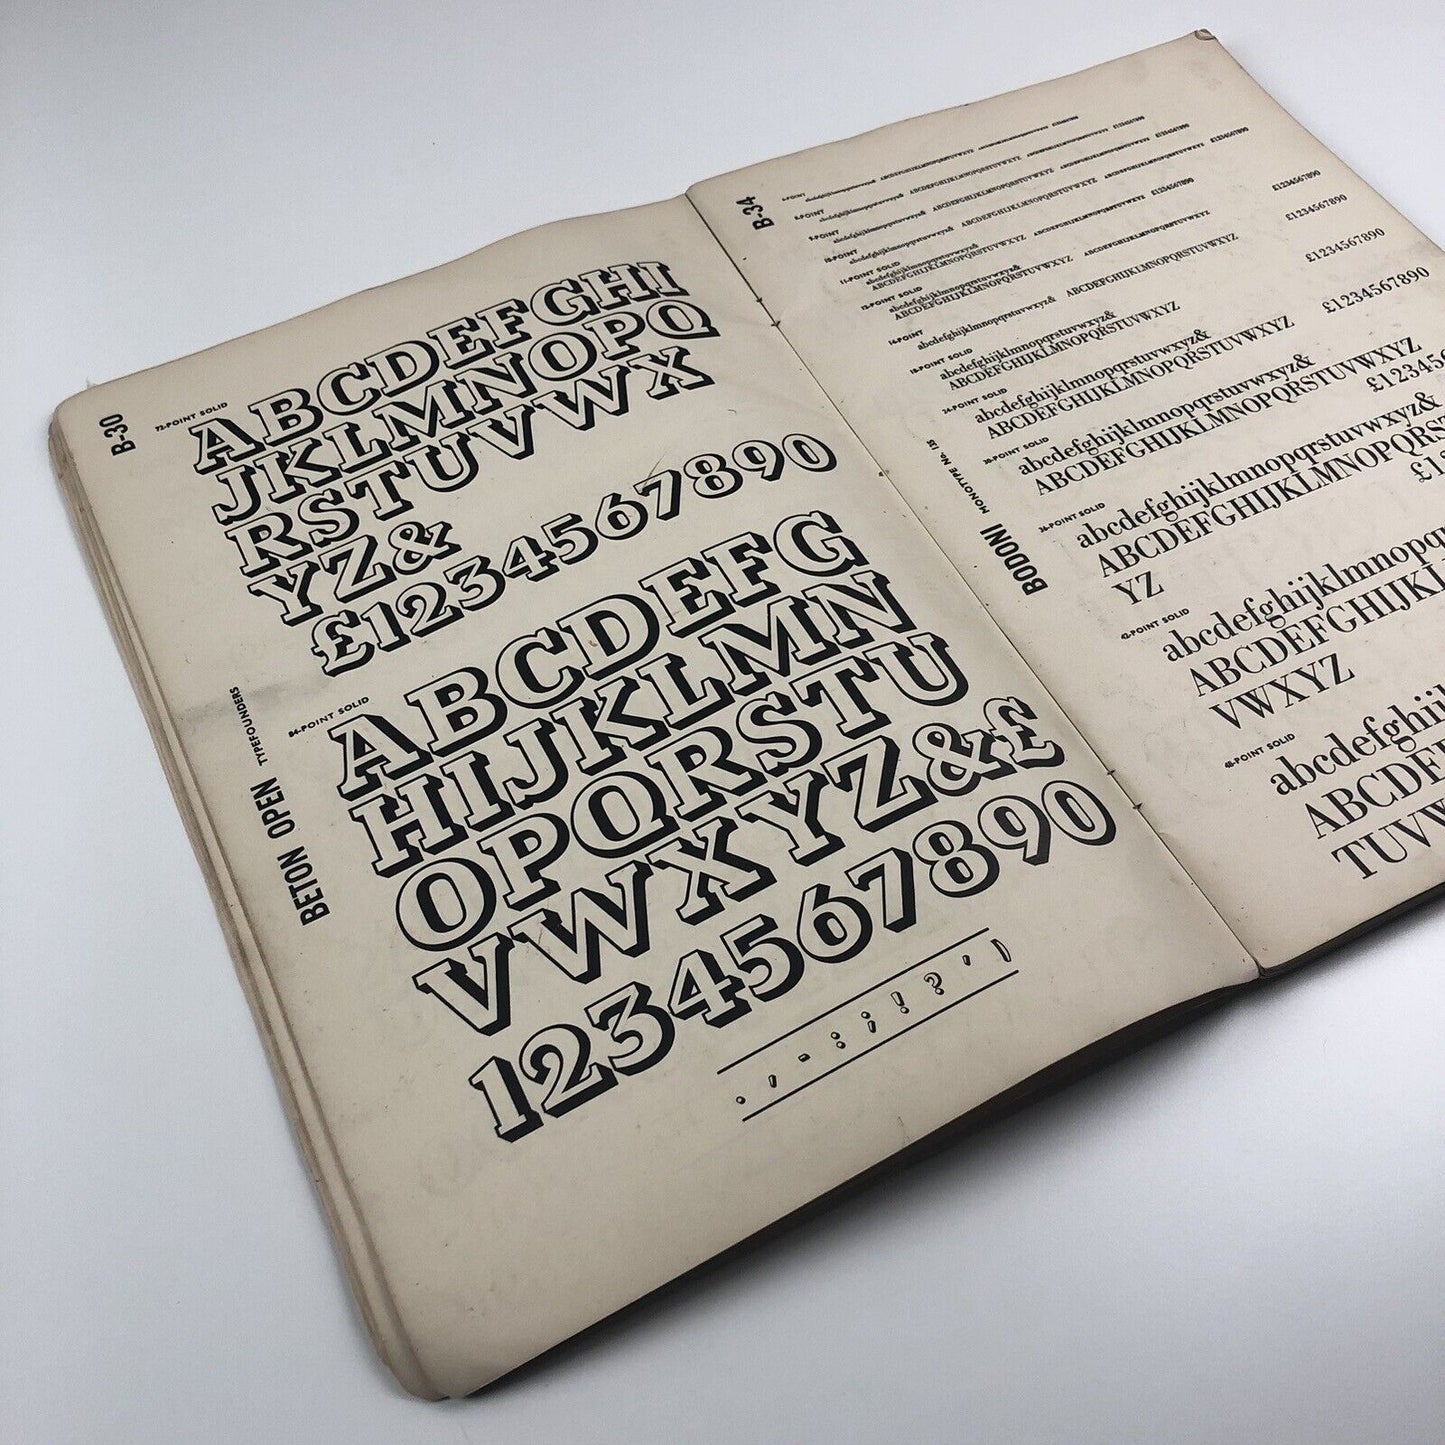 B-30
72-POINT SOLID
ABCDEFGHI
JKLMNOPQ
RSTUVWX
YZ&
£1234567890
BETON OPEN TYPEFOUNDERS
84-POINT SOLID
ABCDEFG
HIJKLMN
OPQRSTU
VWXYZ&£
1234567890
. , - : ; ! ? ' )
B-34
6-POINT
abcdefghijklmnopqrstuvwxyz& ABCDEFGHIJKLMNOPQRSTUVWXYZ £1234567890
8-POINT
abcdefghijklmnopqrstuvwxyz& ABCDEFGHIJKLMNOPQRSTUVWXYZ £1234567890
9-POINT
abcdefghijklmnopqrstuvwxyz& ABCDEFGHIJKLMNOPQRSTUVWXYZ £1234567890
10-POINT
abcdefghijklmnopqrstuvwxyz& ABCDEFGHIJKLMNOPQRSTUVWXYZ £1234567890
11-POINT SOLID
abcdefghijklmnopqrstuvwxyz&
ABCDEFGHIJKLMNOPQRSTUVWXYZ £1234567890
12-POINT SOLID
abcdefghijklmnopqrstuvwxyz&
ABCDEFGHIJKLMNOPQRSTUVWXYZ
14-POINT
abcdefghijklmnopqrstuvwxyz& ABCDEFGHIJKLMNOPQRSTUVWXYZ £1234567890
18-POINT SOLID
abcdefghijklmnopqrstuvwxyz&
ABCDEFGHIJKLMNOPQRSTUVWXYZ £1234567890
24-POINT SOLID
abcdefghijklmnopqrstuvwxyz&
ABCDEFGHIJKLMNOPQRSTUVWXYZ £1234567890
30-POINT SOLID
abcdefghijklmnopqrstuvwxyz&
ABCDEFGHIJKLMNOPQRSTUVWXYZ £1234567890
BODONI MONOTYPE No. 135
36-POINT SOLID
abcdefghijklmnopqrstuvwxyz& £123456
ABCDEFGHIJKLMNOPQRS
YZ £12
42-POINT SOLID
abcdefghijklmnopq
ABCDEFGHIJKL
VWXYZ
48-POINT SOLID
abcdefghijl
ABCDEF
TUVW